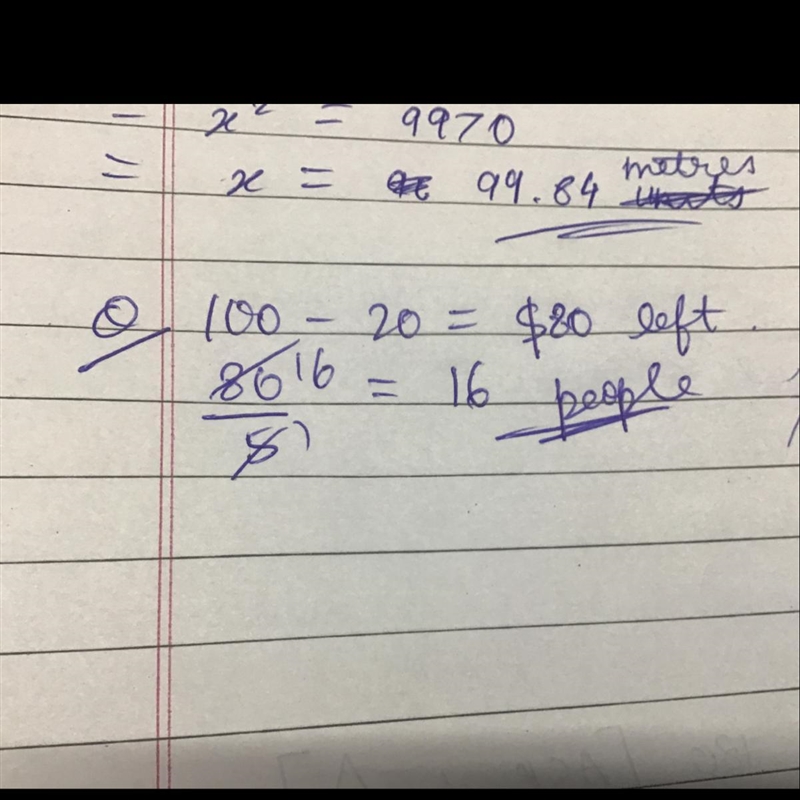 = x² = 9970
= x = 99.84 metres
Q 100 - 20 = $80 left.
80 16 = 16 people
5 1